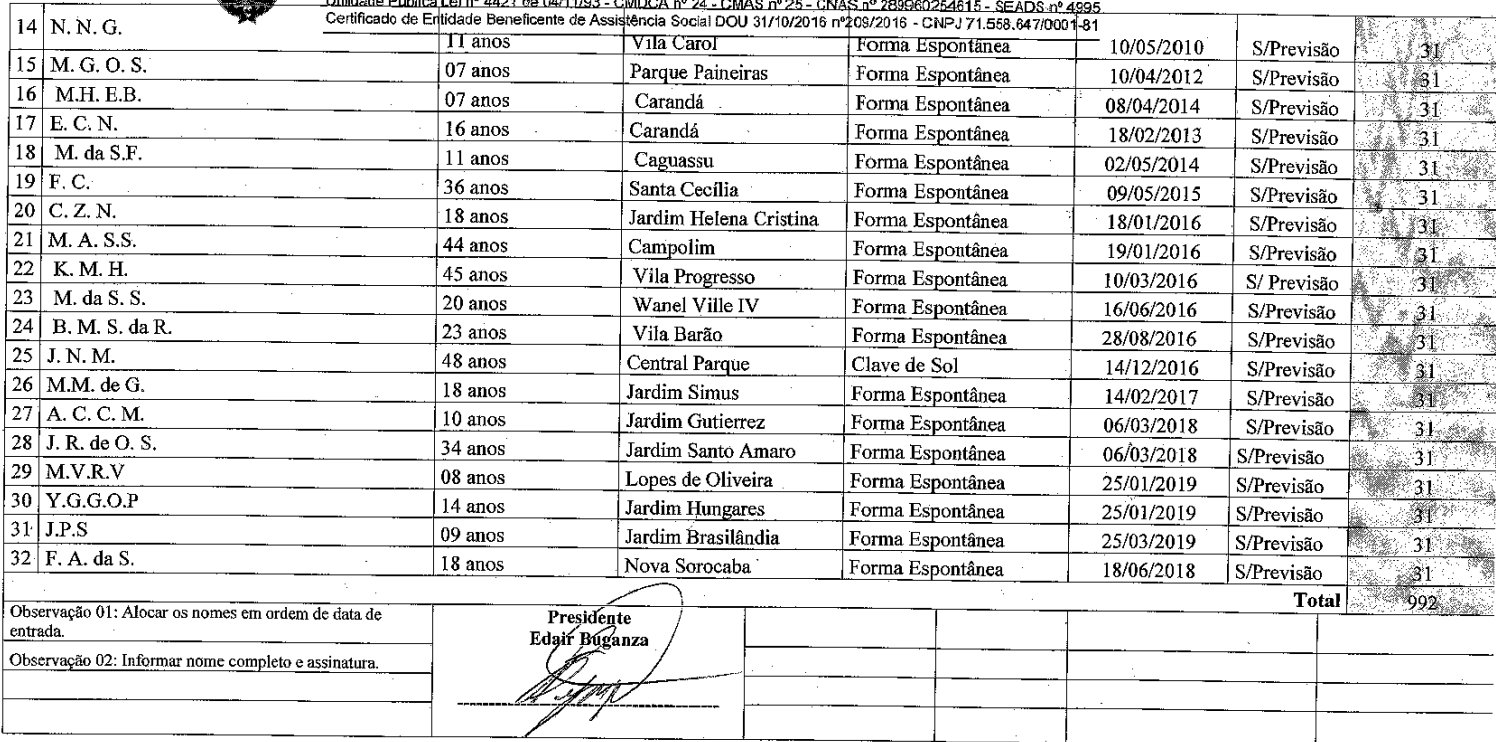 Utilidade Pública Lei nº 4427 de 04/11/93 - CMDCA nº 24 - CMAS nº 25 - CNAS nº 289960254615 - SEADS nº 4995
Certificado de Entidade Beneficente de Assistência Social DOU 31/10/2016 nº209/2016 - CNPJ 71.558.647/0001-81
14 N. N. G. 11 anos Vila Carol Forma Espontânea 10/05/2010 S/Previsão 31
15 M. G. O. S. 07 anos Parque Paineiras Forma Espontânea 10/04/2012 S/Previsão 31
16 M.H. E.B. 07 anos Carandá Forma Espontânea 08/04/2014 S/Previsão 31
17 E. C. N. 16 anos Carandá Forma Espontânea 18/02/2013 S/Previsão 31
18 M. da S.F. 11 anos Caguassu Forma Espontânea 02/05/2014 S/Previsão 31
19 F. C. 36 anos Santa Cecília Forma Espontânea 09/05/2015 S/Previsão 31
20 C. Z. N. 18 anos Jardim Helena Cristina Forma Espontânea 18/01/2016 S/Previsão 31
21 M. A. S.S. 44 anos Campolim Forma Espontânea 19/01/2016 S/Previsão 31
22 K. M. H. 45 anos Vila Progresso Forma Espontânea 10/03/2016 S/ Previsão 31
23 M. da S. S. 20 anos Wanel Ville IV Forma Espontânea 16/06/2016 S/Previsão 31
24 B. M. S. da R. 23 anos Vila Barão Forma Espontânea 28/08/2016 S/Previsão 31
25 J. N. M. 48 anos Central Parque Clave de Sol 14/12/2016 S/Previsão 31
26 M.M. de G. 18 anos Jardim Simus Forma Espontânea 14/02/2017 S/Previsão 31
27 A. C. C. M. 10 anos Jardim Gutierrez Forma Espontânea 06/03/2018 S/Previsão 31
28 J. R. de O. S. 34 anos Jardim Santo Amaro Forma Espontânea 06/03/2018 S/Previsão 31
29 M.V.R.V 08 anos Lopes de Oliveira Forma Espontânea 25/01/2019 S/Previsão 31
30 Y.G.G.O.P 14 anos Jardim Hungares Forma Espontânea 25/01/2019 S/Previsão 31
31 J.P.S 09 anos Jardim Brasilândia Forma Espontânea 25/03/2019 S/Previsão 31
32 F. A. da S. 18 anos Nova Sorocaba Forma Espontânea 18/06/2018 S/Previsão 31
Total 992
Observação 01: Alocar os nomes em ordem de data de
entrada.
Observação 02: Informar nome completo e assinatura.
Presidente
Edair Buganza